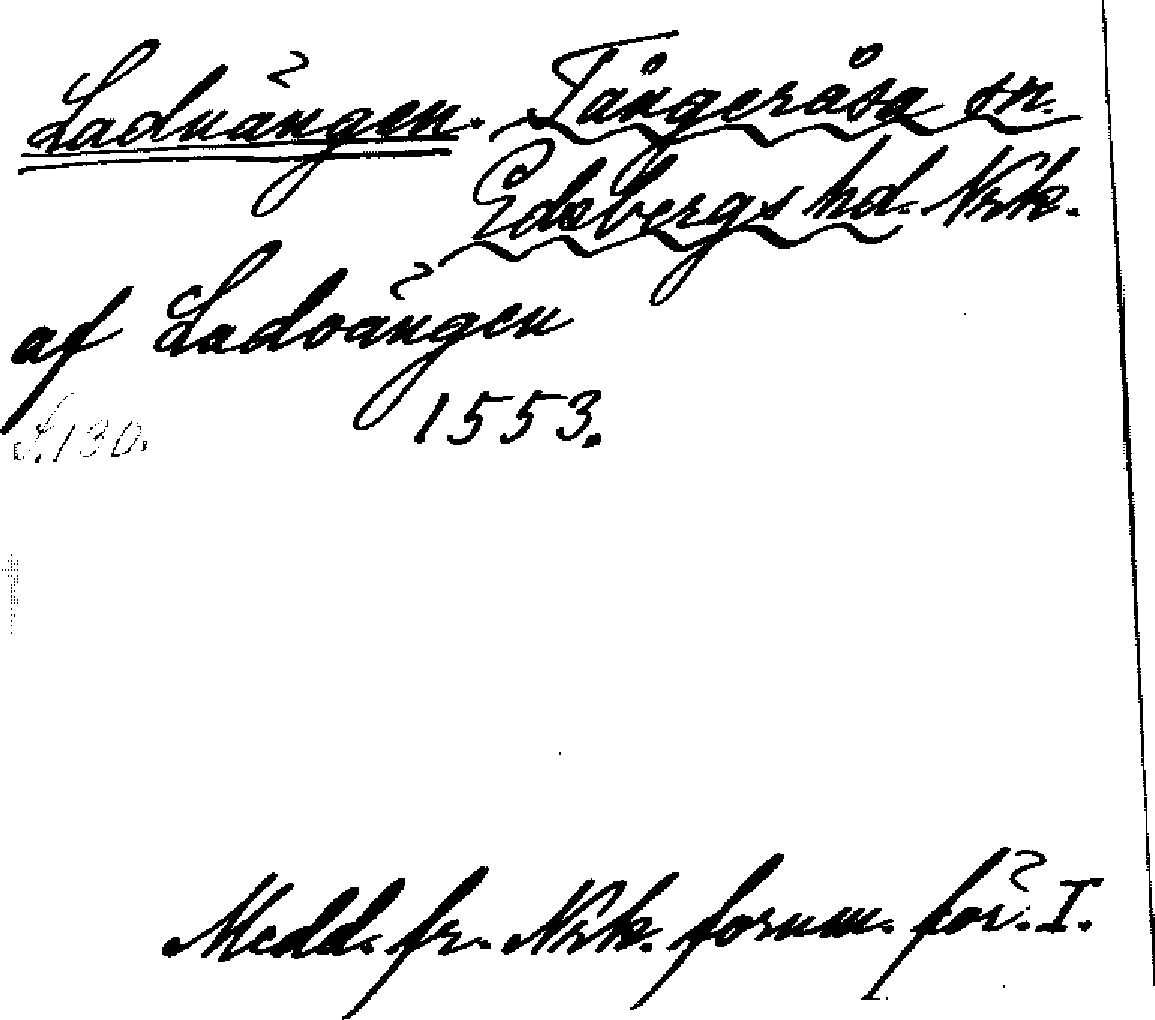 Laduängen. Tångeråsa sn.
Edsbergs hd. Nrk.
af Ladoängen
S. 130. 1553.
Medd. fr. Nrk. fornm. för. I.